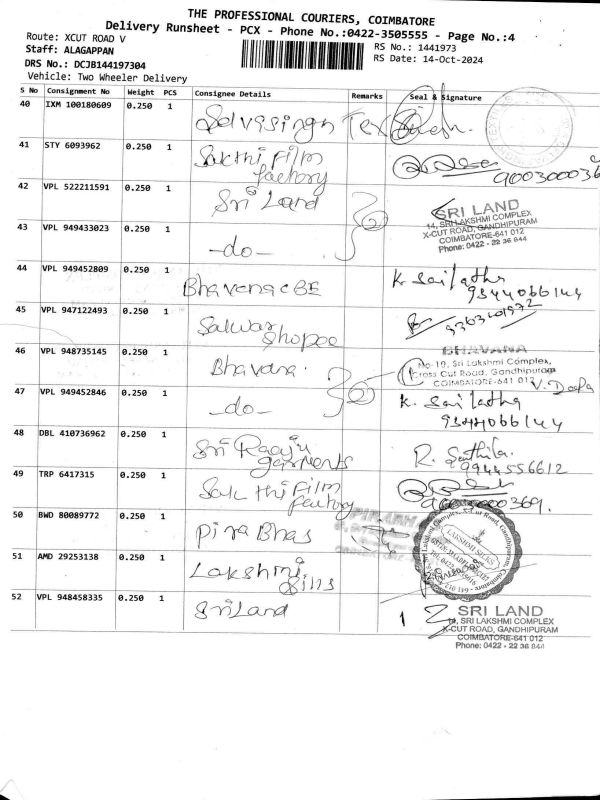 THE PROFESSIONAL COURIERS, COIMBATORE
Delivery Runsheet - PCX - Phone No.:0422-3505555 - Page No.:4
Route: XCUT ROAD V
Staff: ALAGAPPAN
DRS No.: DCJB144197304
Vehicle: Two Wheeler Delivery
RS No.: 1441973
RS Date: 14-Oct-2024
S No Consignment No Weight PCS Consignee Details Remarks Seal & Signature
40 IXM 100180609 0.250 1 Selvasingh Tex
41 STY 6093962 0.250 1 Sakthi Film
factory
42 VPL 522211591 0.250 1 Sri Land
SRI LAND
14, SRI LAKSHMI COMPLEX
X-CUT ROAD, GANDHIPURAM
COIMBATORE-641 012
Phone: 0422 - 22 36 844
43 VPL 949433023 0.250 1 -do-
44 VPL 949452809 0.250 1 Bhavena CBE K. Sailatha
9344066144
45 VPL 947122493 0.250 1 Salwar
shopee
46 VPL 948735145 0.250 1 Bhavana
BHAVANA
No-19, Sri Lakshmi Complex,
Cross Cut Road, Gandhipuram
COIMBATORE-641 012
V. Deepa
47 VPL 949452846 0.250 1 -do- K. Sailatha
9344066144
48 DBL 410736962 0.250 1 Sri Raaju
garments R. Sathila
9944556612
49 TRP 6417315 0.250 1 Sakthi Film
factory
50 BWD 80089772 0.250 1 Pira Bhas
51 AMD 29253138 0.250 1 Lakshmi
Silks
LAKSHMI SILKS
52 VPL 948458335 0.250 1 Sri Land
SRI LAND
14, SRI LAKSHMI COMPLEX
X-CUT ROAD, GANDHIPURAM
COIMBATORE-641 012
Phone: 0422 - 22 36 844